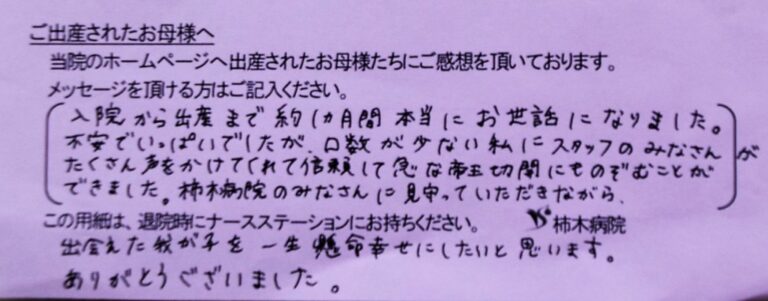 ご出産されたお母様へ
当院のホームページへ出産されたお母様たちにご感想を頂いております。
メッセージを頂ける方はご記入ください。
入院から出産まで約1ヵ月間本当にお世話になりました。
不安でいっぱいでしたが、口数が少ない私にスタッフのみなさんが
たくさん声をかけてくれて信頼して急な帝王切開にものぞむことが
できました。柿木病院のみなさんに見守っていただきながら、
この用紙は、退院時にナースステーションにお持ちください。 柿木病院
出会えた我が子を一生懸命幸せにしたいと思います。
ありがとうございました。